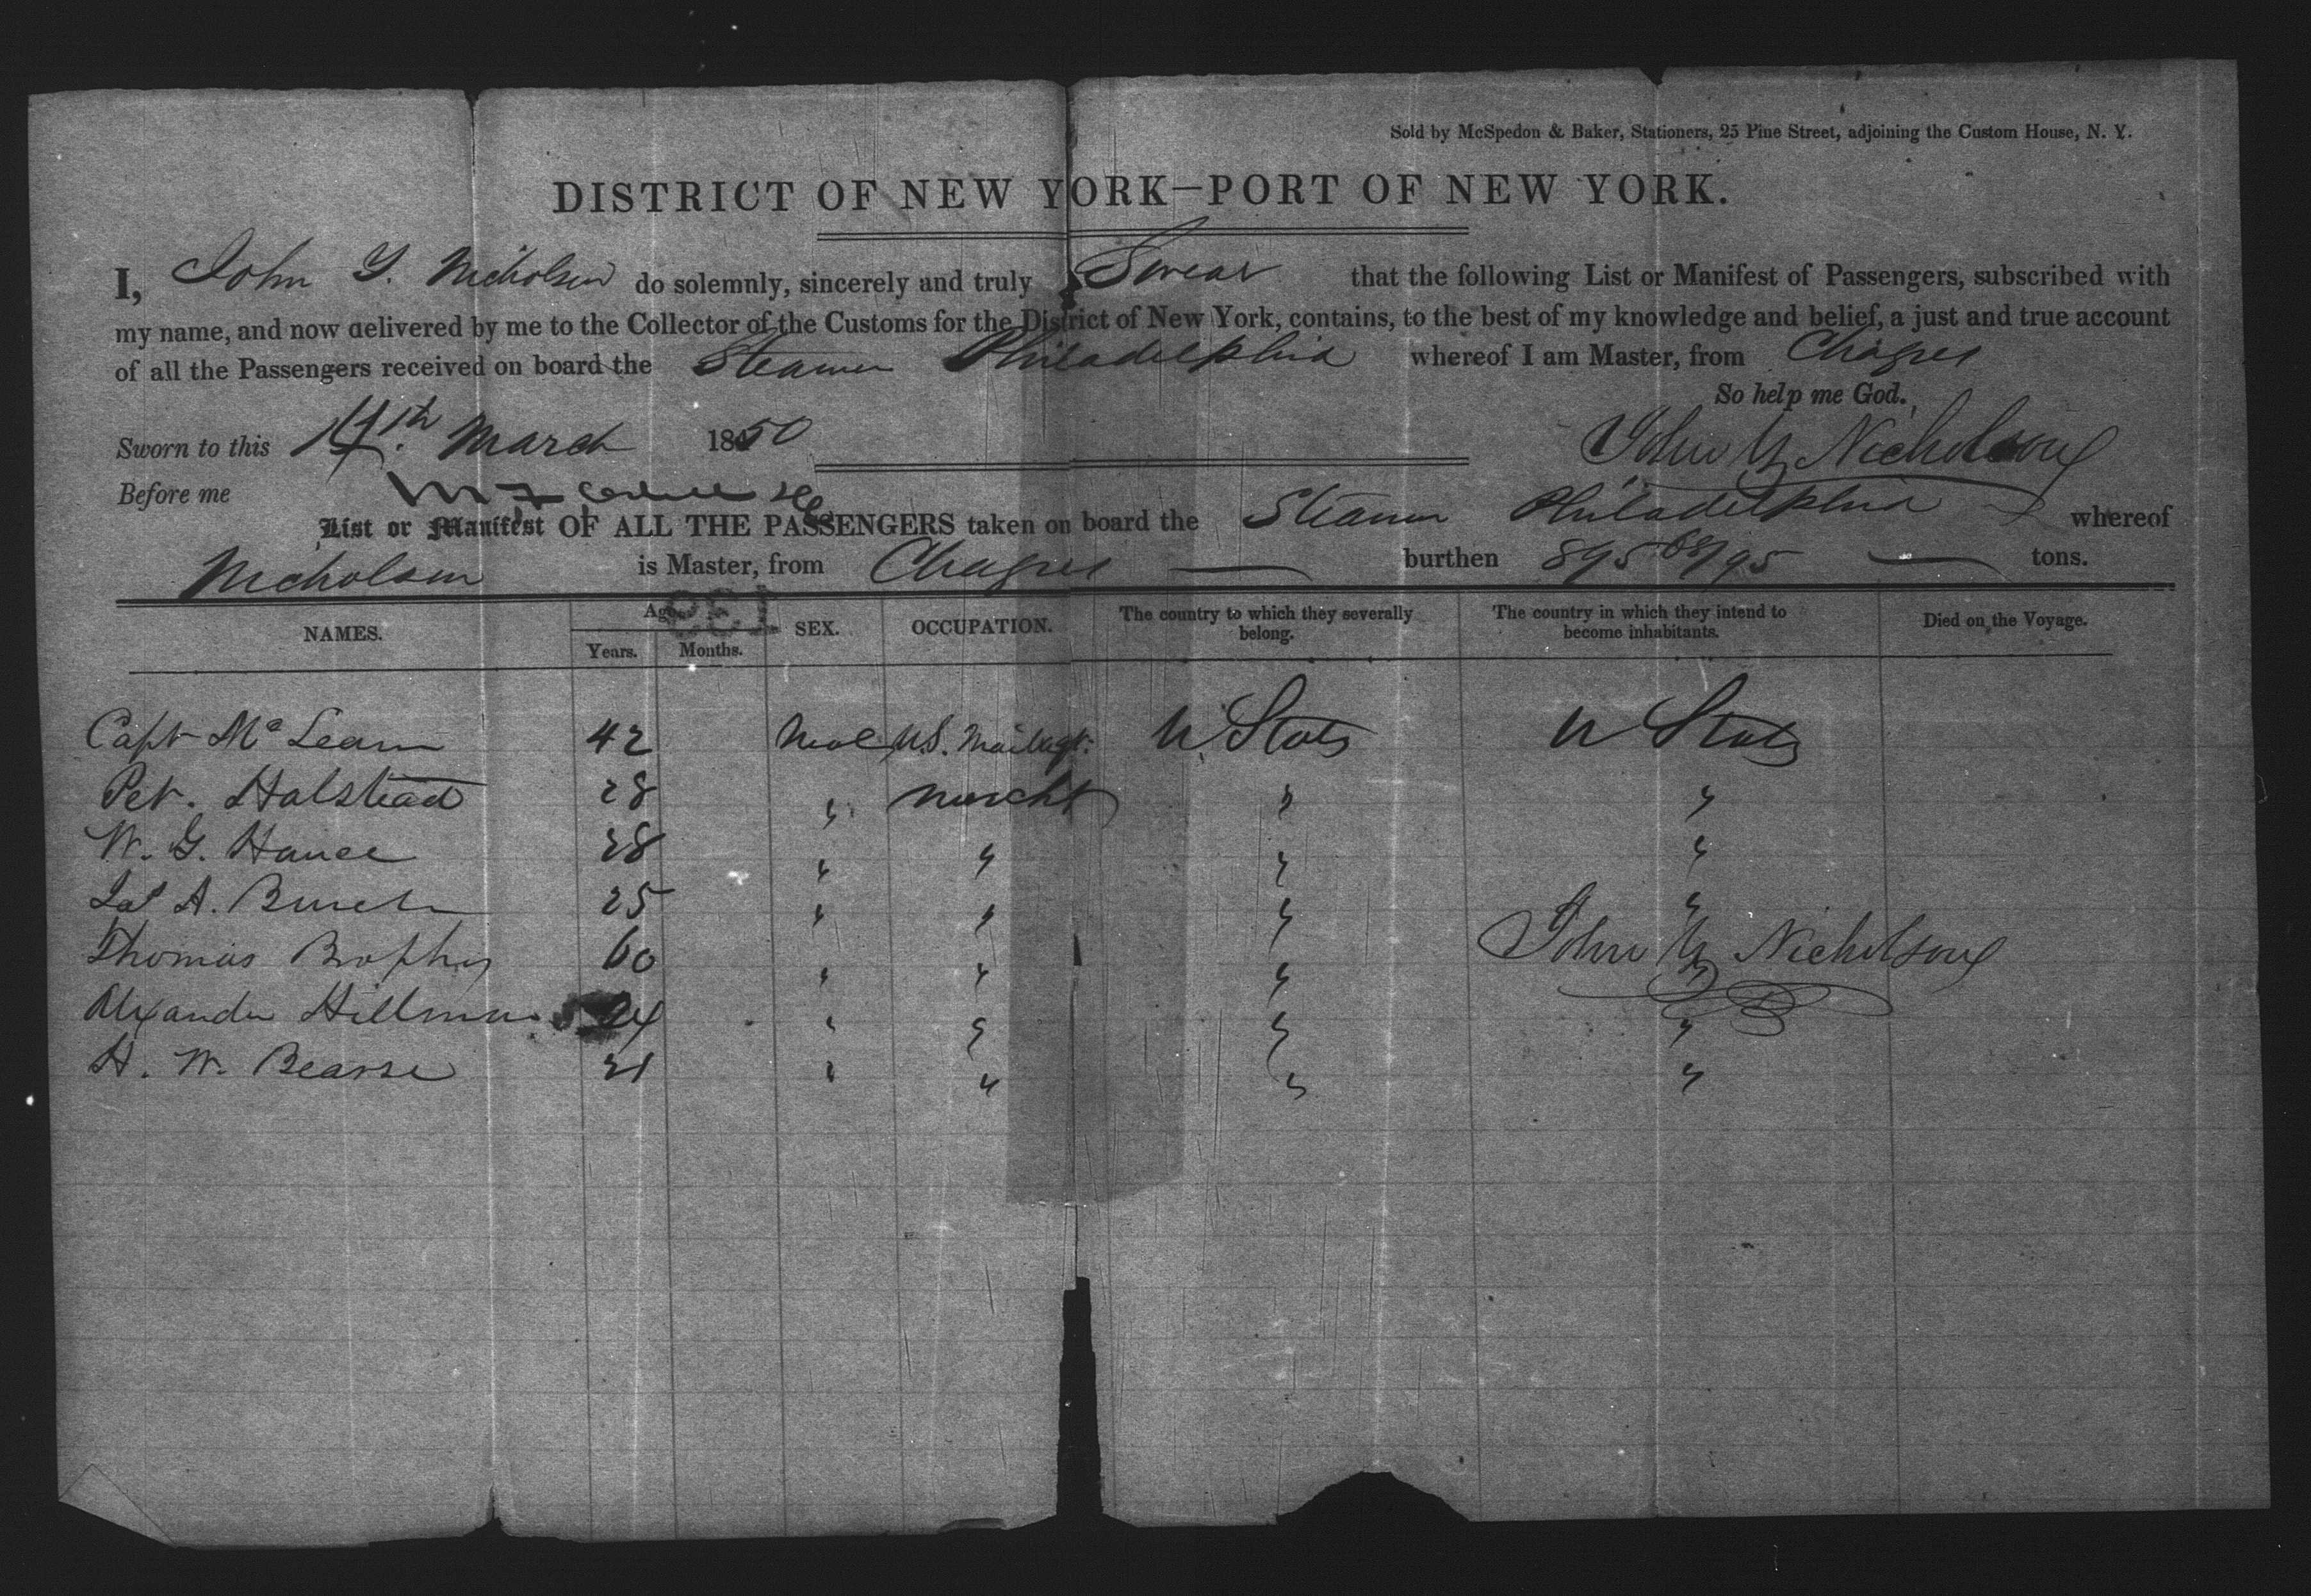 Sold by McSpedon & Baker, Stationers, 25 Pine Street, adjoining the Custom House, N. Y.
DISTRICT OF NEW YORK—PORT OF NEW YORK.
I, John Y. Nicholson do solemnly, sincerely and truly Swear that the following List or Manifest of Passengers, subscribed with
my name, and now delivered by me to the Collector of the Customs for the District of New York, contains, to the best of my knowledge and belief, a just and true account
of all the Passengers received on board the Steamer Philadelphia whereof I am Master, from Chagres
So help me God.
Sworn to this 14th March 1850
John Y Nicholson
Before me
List or Manifest OF ALL THE PASSENGERS taken on board the Steamer Philadelphia whereof
Nicholson is Master, from Chagres burthen 895 68/95 tons.
NAMES. Age. SEX. OCCUPATION. The country to which they severally belong. The country in which they intend to become inhabitants. Died on the Voyage.
Years. Months.
Capt Mc Lean 42 Male U.S. Mail agt. U States U States
Pet. Halstead 28 " mercht " "
W. G. Hance 28 " " " "
A. Burch 25 " " " "
Thomas Brophy 60 " " "
John Y Nicholson
Alexander Hillman 24 " " " "
H. W. Bearse 21 " " " "